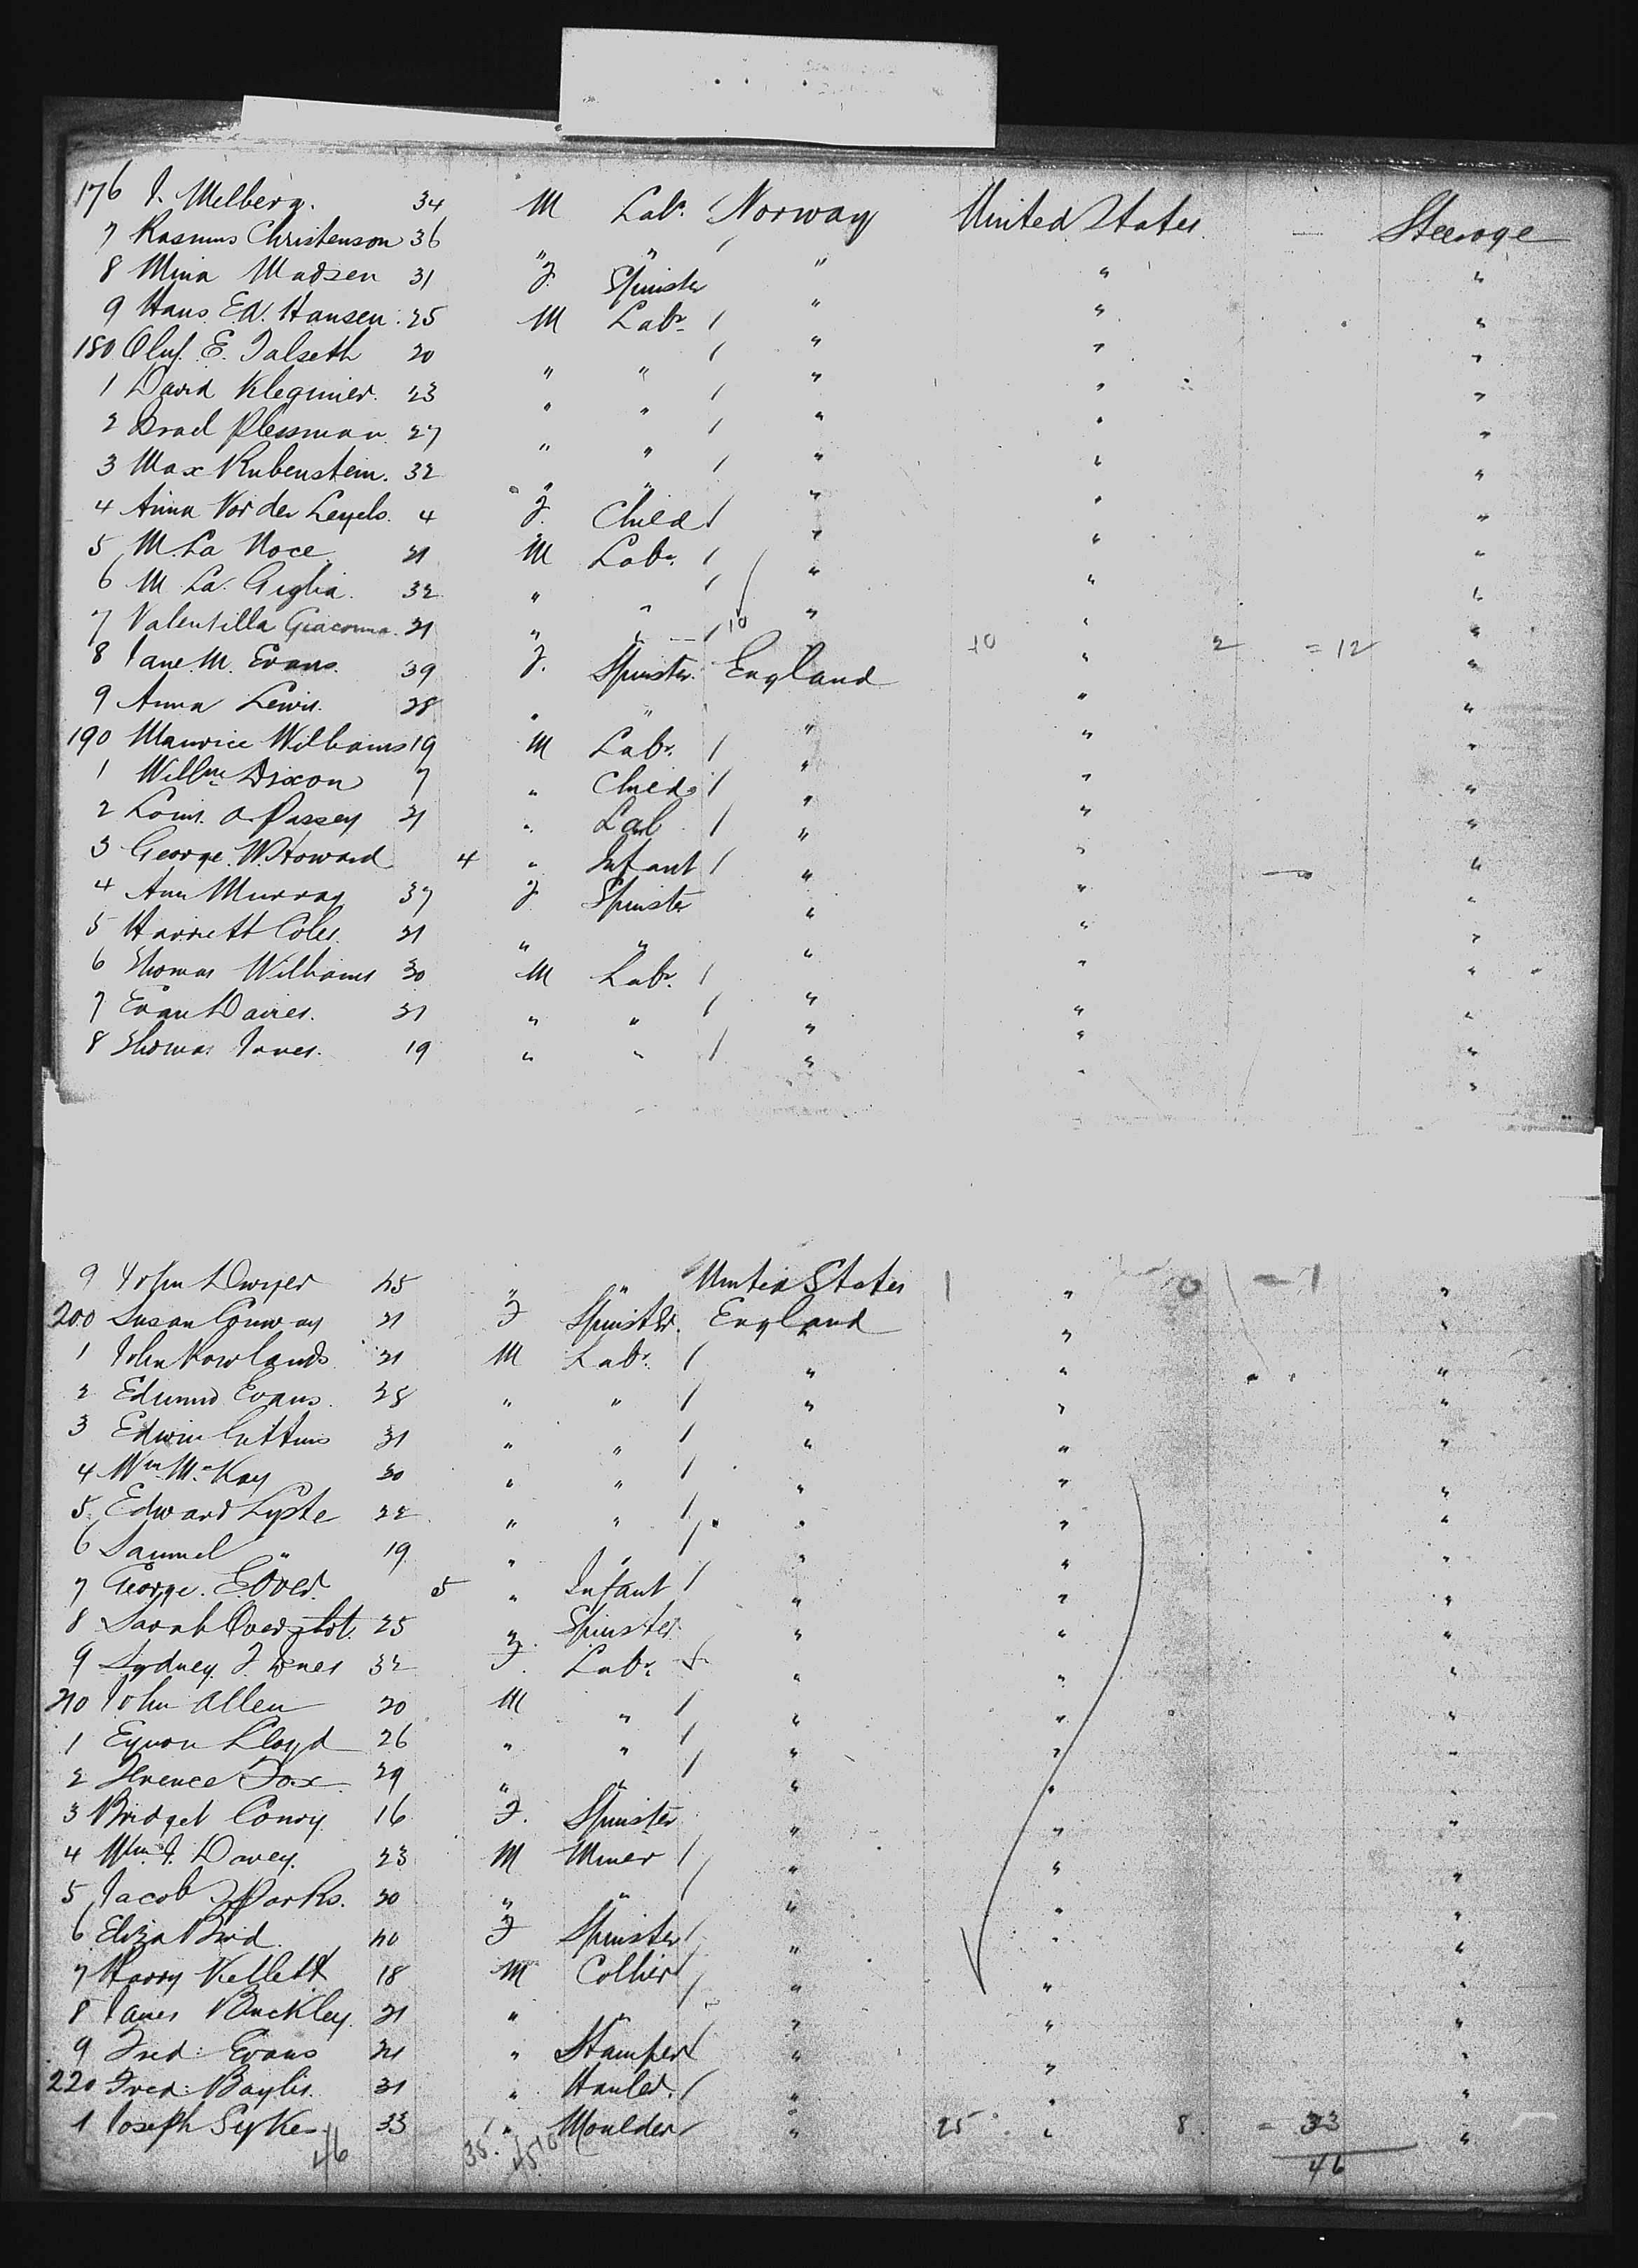 176 J. Melberg. 34 M Labr. Norway United States — Steerage
7 Rasmus Christenson 36 " " / " " "
8 Mina Madsen 31 F. Spinster " " "
9 Hans Ed. Hansen. 25 M Labr. / " " "
180 Oluf. E. Talseth 20 " " / " " "
1 David Klegmier. 23 " " / " " "
2 Israel Plessman. 27 " " / " " "
3 Max Rubenstein. 32 " " / " " "
4 Anna Vor der Leyels. 4 F. Child / " " "
5 M. La Noce 21 M Labr. / " " "
6 M La. Giglia. 32 " " / " " "
7 Valentilla Giacomma. 21 " " / 10 " "
8 Jane M. Evans. 39 F. Spinster. England 10 " 2 = 12 "
9 Anna Lewis. 28 " " " " "
190 Maurice Williams 19 M Labr. / " " "
1 Willm Dixon 7 " Child. / " " "
2 Louis. A. Passey 21 " Lab / " " "
3 George. W. Howard 4 " Infant / " " "
4 Ann Murray 37 F Spinster " " "
5 Harriett Coles. 21 " " " " "
6 Thomas Williams 30 M Labr. / " " "
7 Evan Davies. 31 " " / " " "
8 Thomas Jones. 19 " " / " " "
9 John Dwyer 45 " " United States 1 " 0 = 1 "
200 Susan Conway 21 F Spinster. England " "
1 John Rowlands 21 M Labr. / " " "
2 Edmund Evans. 28 " " / " " "
3 Edwin Gittins 31 " " / " " "
4 Wm. McKay 30 " " / " " "
5. Edward Lyste 22 " " / " " "
6 Samuel " 19 " " / " " "
7 George. E. Over. 5 " Infant / " " "
8 Sarah Over 25 F. Spinster. " " "
9 Sydney. J. Jones 32 F. Labr. " " "
210 John Allen 20 M " / " " "
1 Eynon Lloyd 26 " " / " " "
2 Terence Fox 29 " " / " " "
3 Bridget Conry 16 F. Spinster " " "
4 Wm. J. Davey. 23 M Miner / " " "
5 Jacob Parks. 20 " " / " " "
6 Eliza Bird 40 F Spinster / " " "
7 Harry Kellett 18 M Collier / " " "
8 James Buckley. 21 " " / " " "
9 Fred: Evans 21 " Stamper / " " "
220 Fred: Baylis. 31 " Hauler. / " " "
1 Joseph Sykes 33 " Moulder / " 25 " 8 = 33 "
46 35. 45 10 46